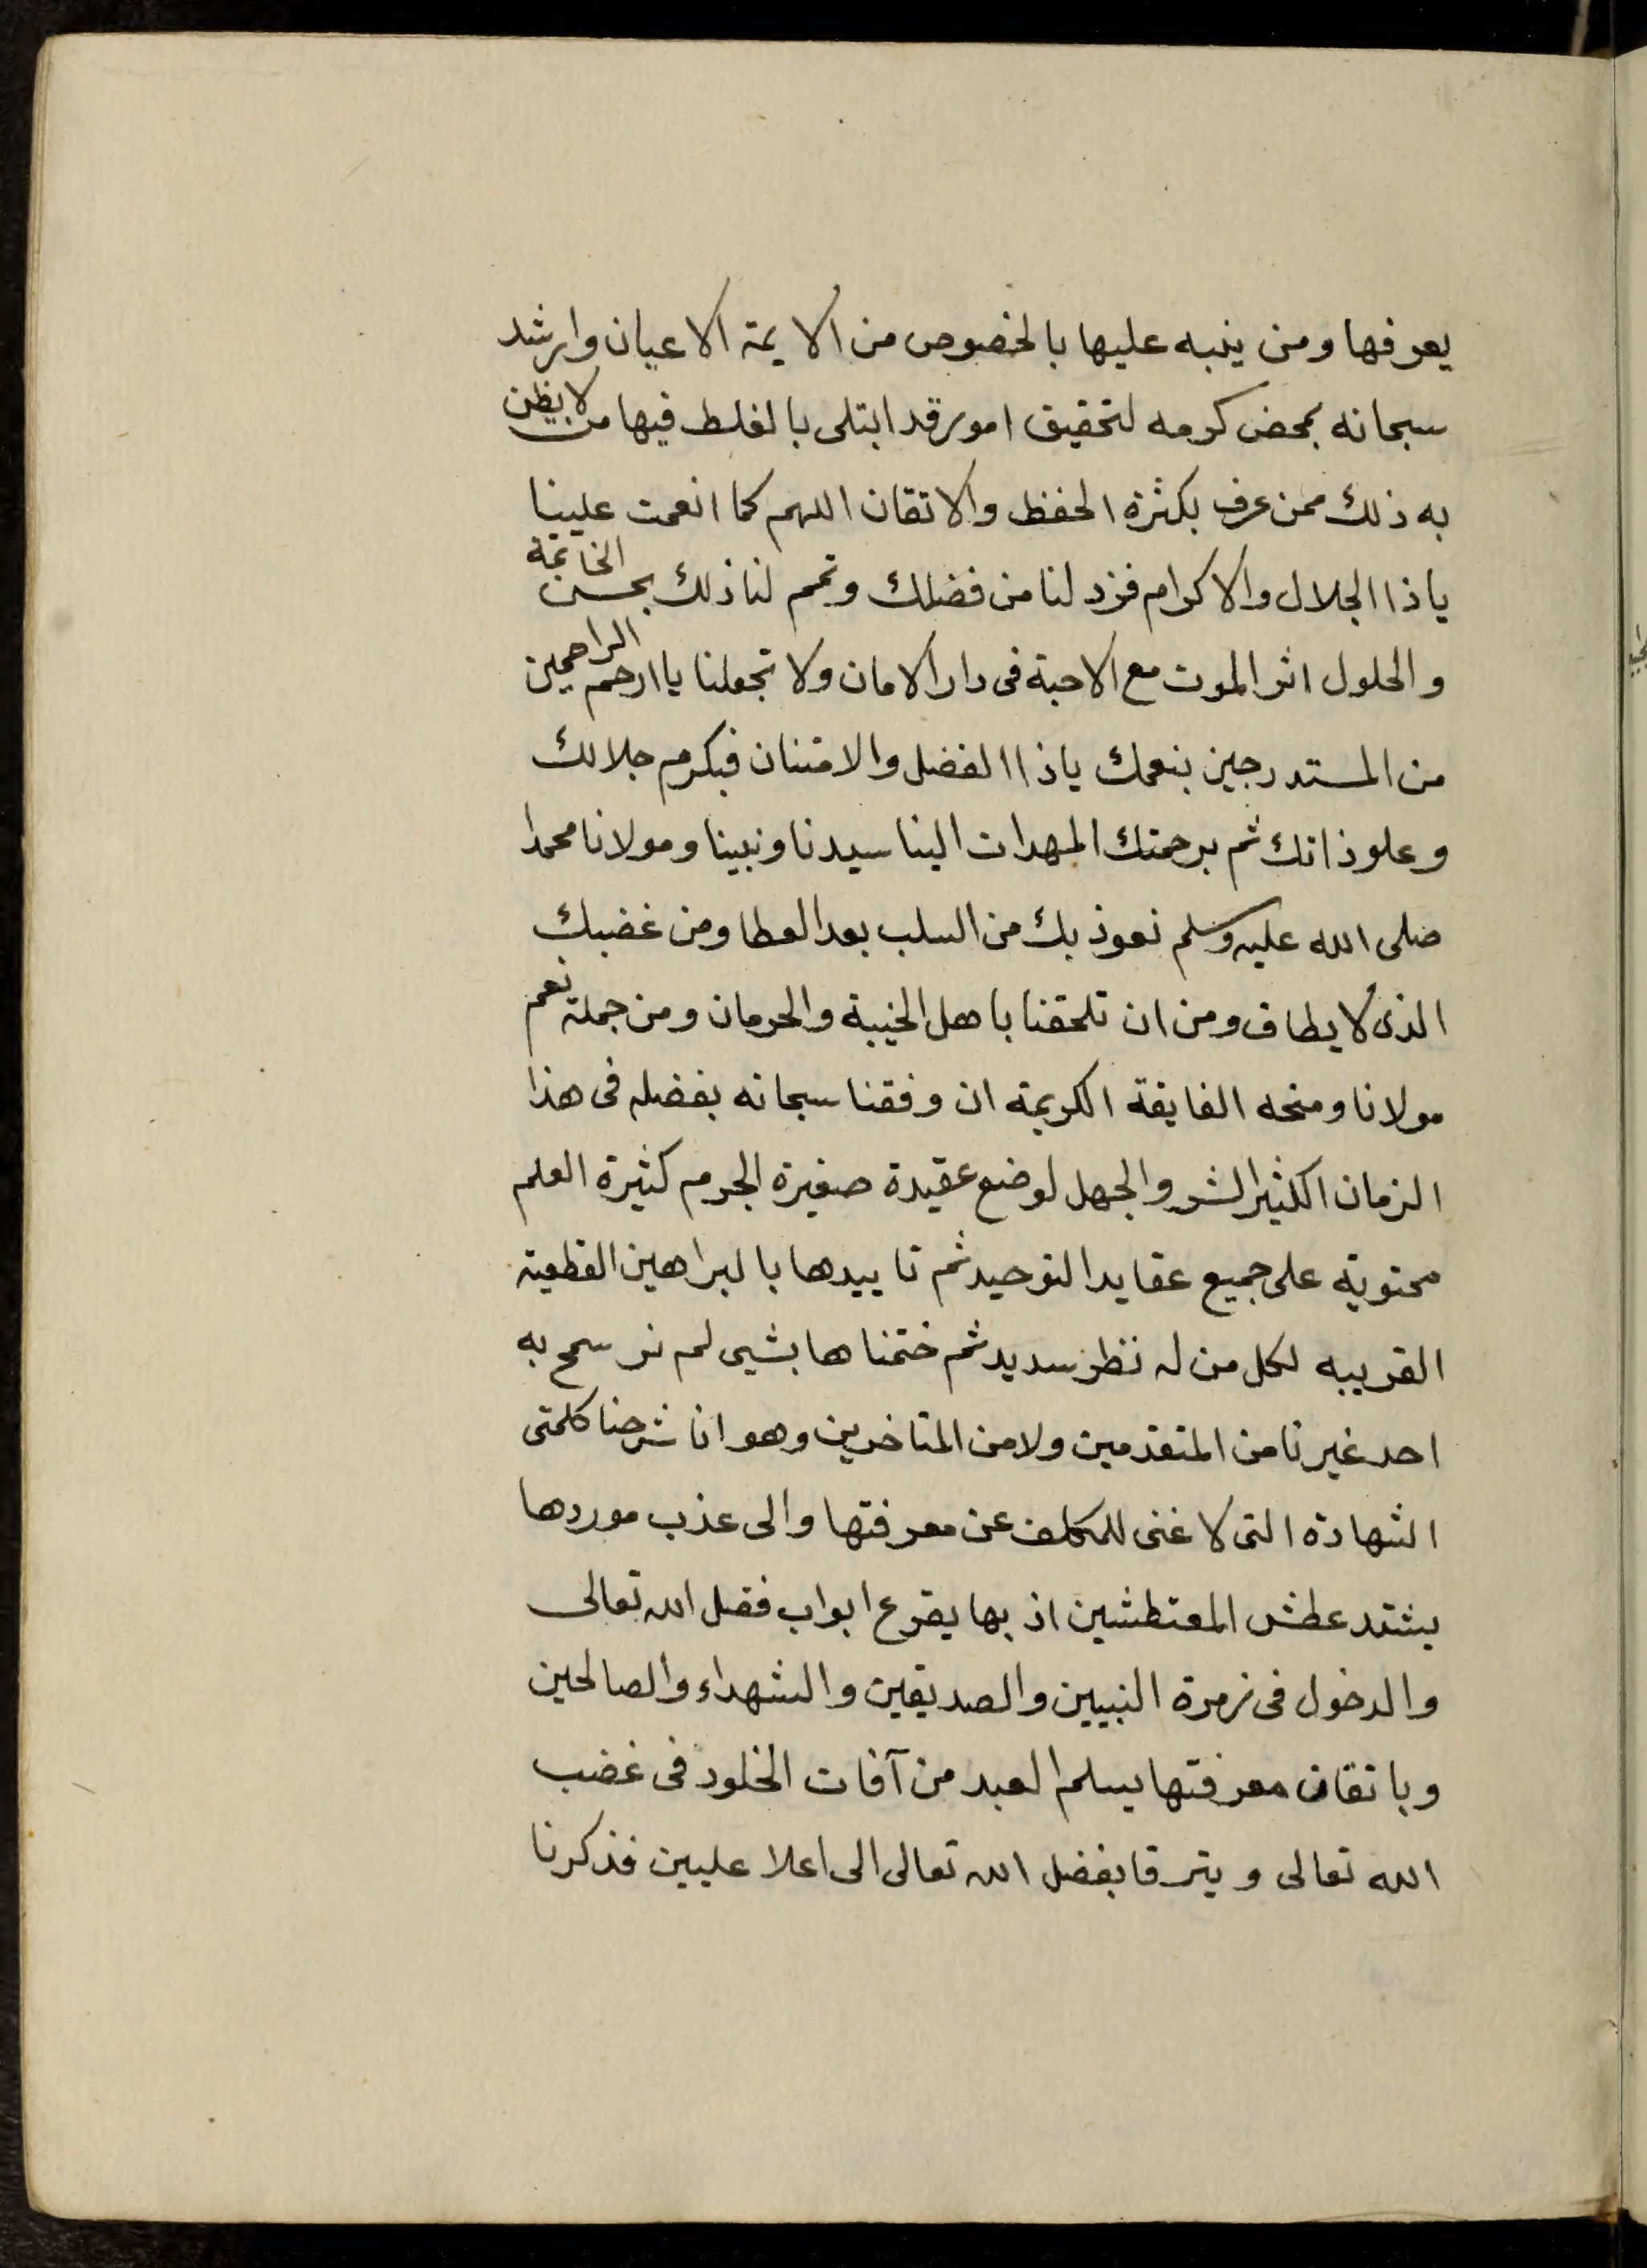 يعرفها ومن ينبه عليها بالخصوص من الايمة الاعيان وارشد
سبحانه بمحض كرمه لتحقيق امور قد ابتلى بالغلط فيها من لا يظن
به ذلك ممن عرف بكثرة الحفظ والاتقان اللهم كما انعمت علينا
ياذا الجلال والاكرام فزد لنا من فضلك وتمم لنا ذلك بحسن الخاتمة
والحلول اثر الموت مع الاحبة فى دار الامان ولا تجعلنا يا ارحم الراحمين
من المستدرجين بنعمك ياذا الفضل والامتنان فبكرم جلالك
وعلو ذاتك ثم برحمتك المهدات الينا سيدنا ونبينا ومولانا محمدا
صلى الله عليه وسلم نعوذ بك من السلب بعد العطا ومن غضبك
الذى لا يطاق ومن ان تلحقنا باهل الخيبة والحرمان ومن جملة نعم
مولانا ومنحه الفايقة الكريمة ان وفقنا سبحانه بفضله فى هذا
الزمان الكثير الشر والجهل لوضع عقيدة صغيرة الجرم كثيرة العلم
محتوية على جميع عقايد التوحيد ثم تاييدها بالبراهين القطعية
القريبه لكل من له نظر سديد ثم ختمناها بشيى لم نر سمح به
احد غيرنا من المتقدمين ولا من المتاخرين وهو انا شرحنا كلمتى
الشهادة التى لا غنى للمكلف عن معرفتها والى عذب موردها
يشتد عطش المعتطشين اذ بها يقرع ابواب فضل الله تعالى
والدخول فى زمرة النبيين والصديقين والشهداء والصالحين
وباتقان معرفتها يسلم العبد من آفات الخلود فى غضب
الله تعالى ويترقا بفضل الله تعالى الى اعلا عليين فذكرنا